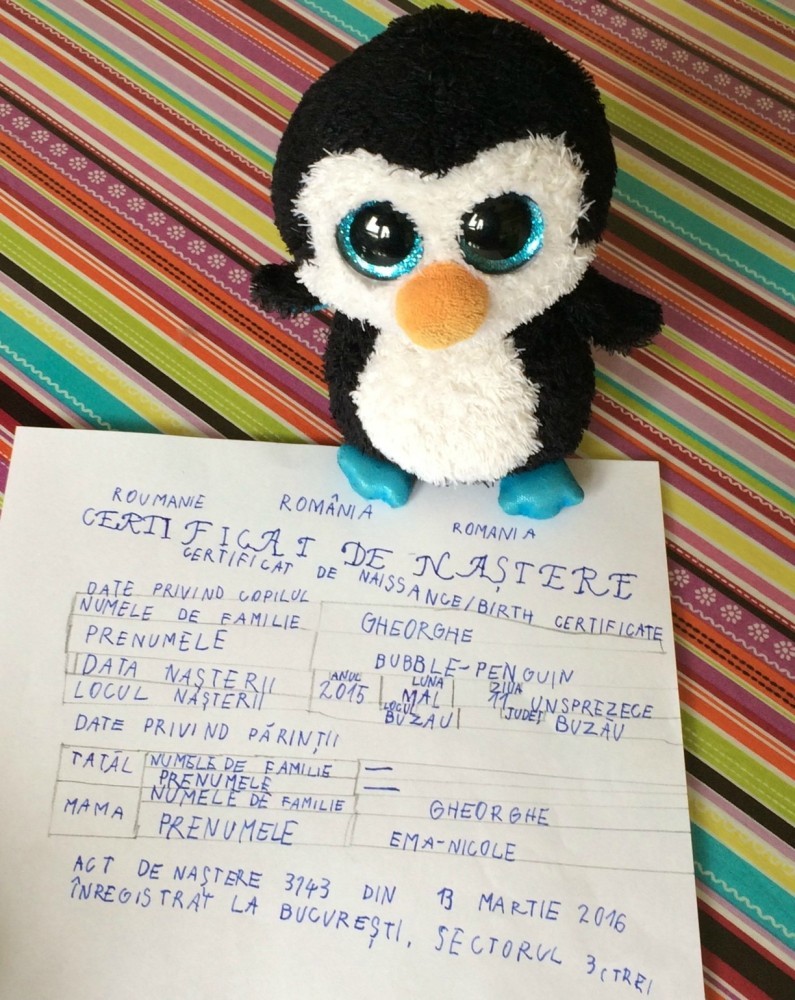 ROUMANIE ROMÂNIA ROMANIA
CERTIFICAT DE NAȘTERE
CERTIFICAT DE NAISSANCE/BIRTH CERTIFICATE
DATE PRIVIND COPILUL
NUMELE DE FAMILIE GHEORGHE
PRENUMELE BUBBLE-PENGUIN
DATA NAȘTERII ANUL 2015 LUNA MAI ZIUA 11 UNSPREZECE
LOCUL NAȘTERII LOCUL BUZAU JUDEȚ BUZĂU
DATE PRIVIND PĂRINȚII
TATĂL NUMELE DE FAMILIE —
PRENUMELE —
MAMA NUMELE DE FAMILIE GHEORGHE
PRENUMELE EMA-NICOLE
ACT DE NAȘTERE 3143 DIN 13 MARTIE 2016
ÎNREGISTRAT LA BUCUREȘTI, SECTORUL 3 (TREI